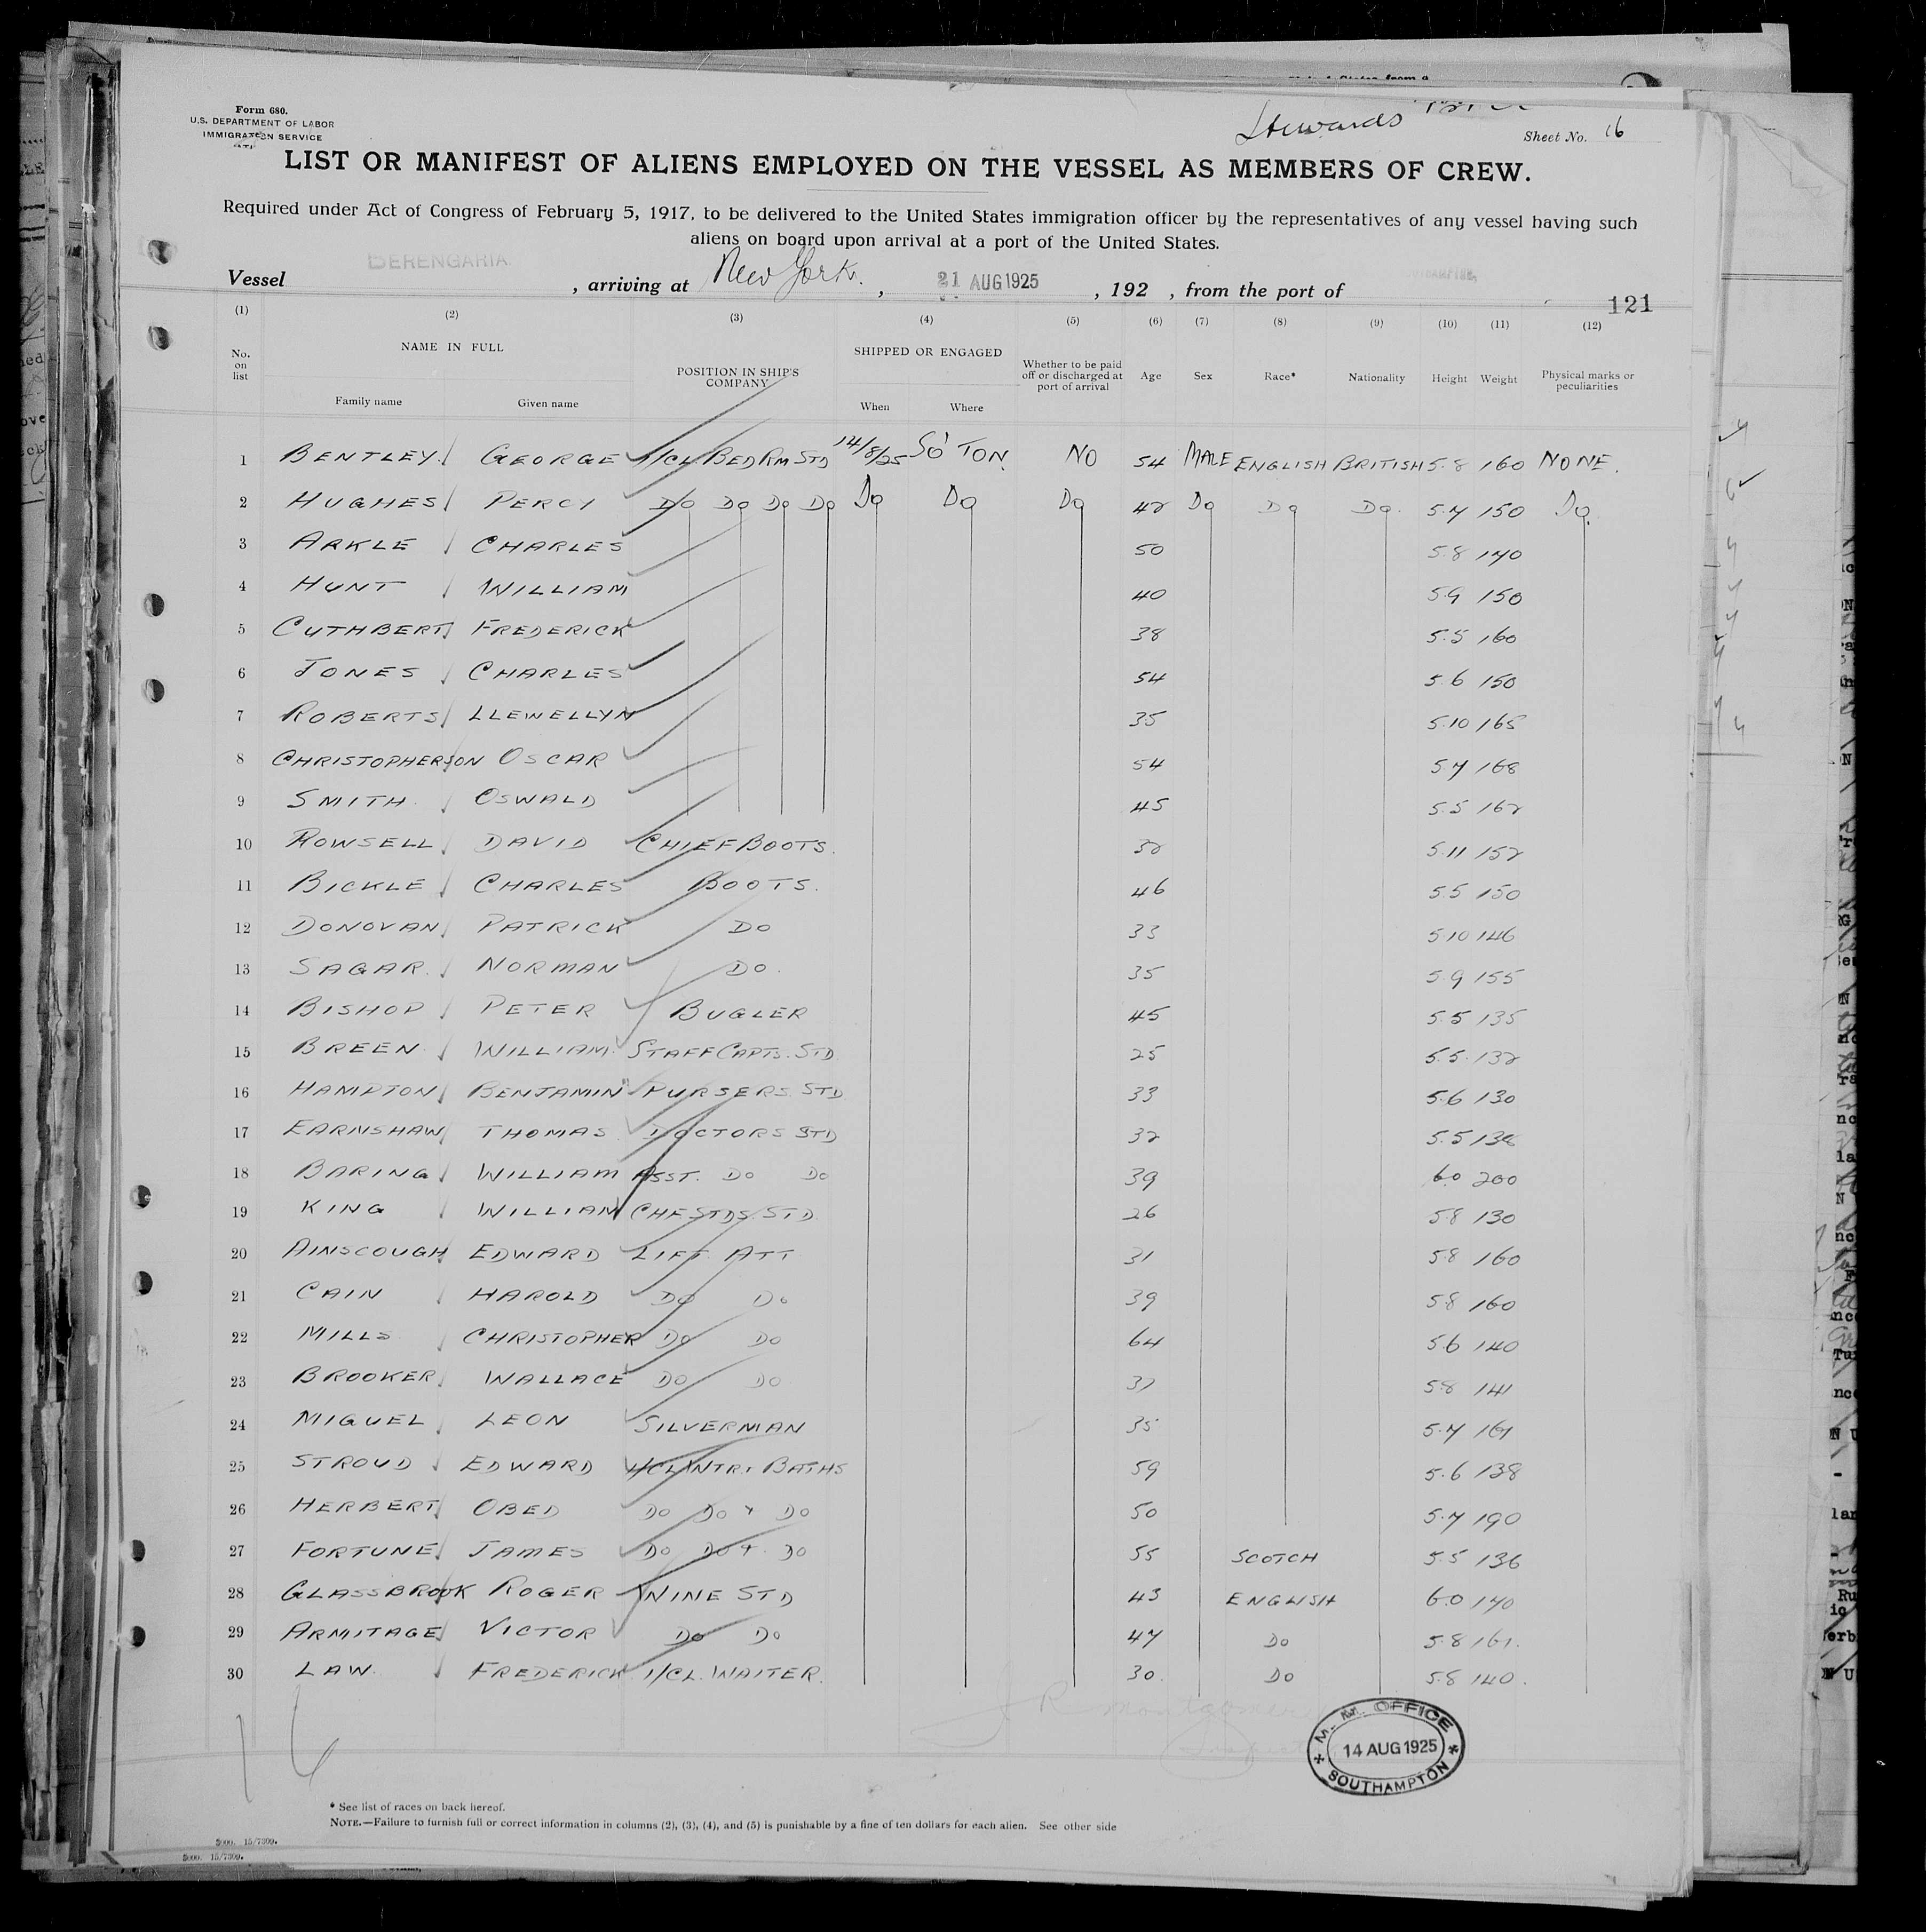 Form 680.
U.S. DEPARTMENT OF LABOR
IMMIGRATION SERVICE
Stewards
Sheet No. 16
LIST OR MANIFEST OF ALIENS EMPLOYED ON THE VESSEL AS MEMBERS OF CREW.
Required under Act of Congress of February 5, 1917, to be delivered to the United States immigration officer by the representatives of any vessel having such
aliens on board upon arrival at a port of the United States.
Vessel BERENGARIA, arriving at New York, 21 AUG 1925, 192 , from the port of
121
(1) (2) (3) (4) (5) (6) (7) (8) (9) (10) (11) (12)
No. on list NAME IN FULL POSITION IN SHIP'S COMPANY SHIPPED OR ENGAGED Whether to be paid off or discharged at port of arrival Age Sex Race* Nationality Height Weight Physical marks or peculiarities
Family name Given name When Where
1 BENTLEY. GEORGE 1/CL BEDRM STD 14/8/25 SO'TON. NO 54 MALE ENGLISH BRITISH 5.8 160 NONE.
2 HUGHES PERCY DO DO DO DO DO DO DO 42 DO DO DO. 5.7 150 DO.
3 ARKLE CHARLES 50 5.8 140
4 HUNT WILLIAM 40 5.9 150
5 CUTHBERT FREDERICK 38 5.5 160
6 JONES CHARLES 54 5.6 150
7 ROBERTS LLEWELLYN 35 5.10 165
8 CHRISTOPHERSON OSCAR 54 5.7 168
9 SMITH. OSWALD 45 5.5 162
10 ROWSELL DAVID CHIEF BOOTS. 32 5.11 152
11 BICKLE CHARLES BOOTS. 46 5.5 150
12 DONOVAN PATRICK DO 33 5.10 146
13 SAGAR. NORMAN DO. 35 5.9 155
14 BISHOP PETER BUGLER 45 5.5 135
15 BREEN. WILLIAM. STAFF CAPTS. STD. 25 5.5 132
16 HAMPTON BENJAMIN PURSERS STD. 33 5.6 130
17 EARNSHAW THOMAS. DOCTORS STD 32 5.5 138
18 BARING WILLIAM ASST. DO DO 39 6.0 200
19 KING WILLIAM CHF STDS. STD. 26 5.8 130
20 AINSCOUGH EDWARD LIFT ATT 31 5.8 160
21 CAIN HAROLD DO DO 39 5.8 160
22 MILLS CHRISTOPHER DO DO 64 5.6 140
23 BROOKER WALLACE DO DO 37 5.8 141
24 MIGUEL LEON SILVERMAN 35 5.7 161
25 STROUD EDWARD 1/CL WTR + BATHS 59 5.6 138
26 HERBERT OBED DO DO + DO 50 5.7 190
27 FORTUNE JAMES DO DO + DO 55 SCOTCH 5.5 136
28 GLASSBROOK ROGER WINE STD 43 ENGLISH 6.0 140
29 ARMITAGE VICTOR DO DO 47 DO 5.8 161.
30 LAW. FREDERICK 1/CL. WAITER. 30. DO 5.8 140.
R Montgomery
16
M. M. OFFICE
14 AUG 1925
SOUTHAMPTON
* See list of races on back hereof.
NOTE.—Failure to furnish full or correct information in columns (2), (3), (4), and (5) is punishable by a fine of ten dollars for each alien. See other side
5000. 15/7309.
5000. 15/7309.